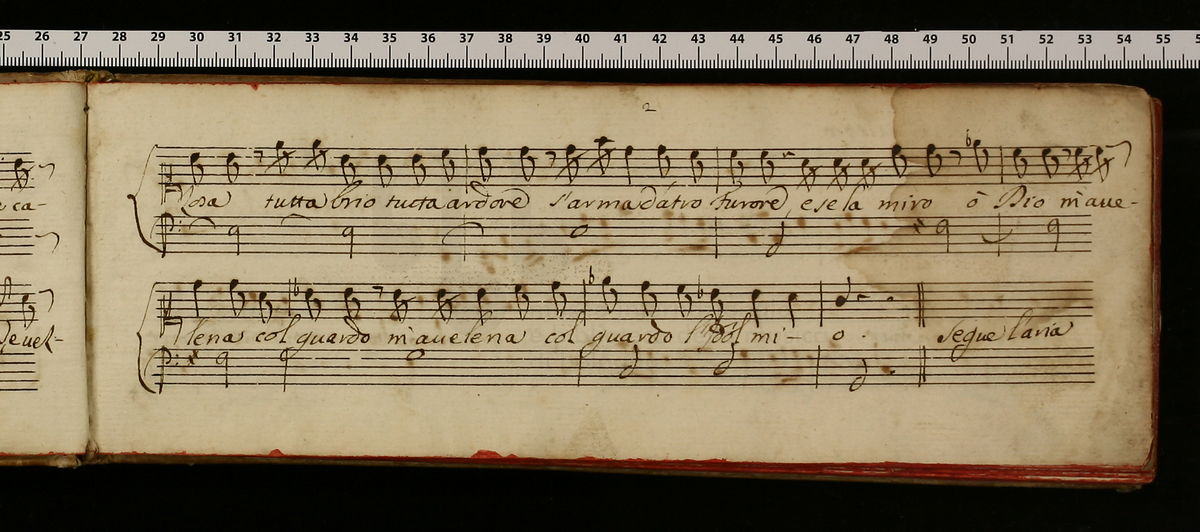 25 26 27 28 29 30 31 32 33 34 35 36 37 38 39 40 41 42 43 44 45 46 47 48 49 50 51 52 53 54 55
2
ca-
losa tutta brio tutta ardore s'arma d'atro furore, e se la miro ò Dio m'aue-
lena col guardo m'auelena col guardo l'Idol mi- o. segue l'aria